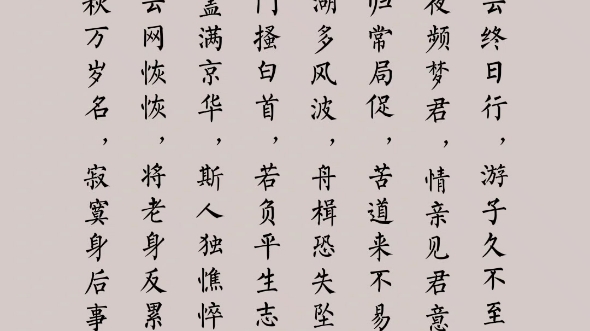 云终日行，游子久不至
夜频梦君，情亲见君意
归常局促，苦道来不易
湖多风波，舟楫恐失坠
门搔白首，若负平生志
盖满京华，斯人独憔悴
云网恢恢，将老身反累
秋万岁名，寂寞身后事